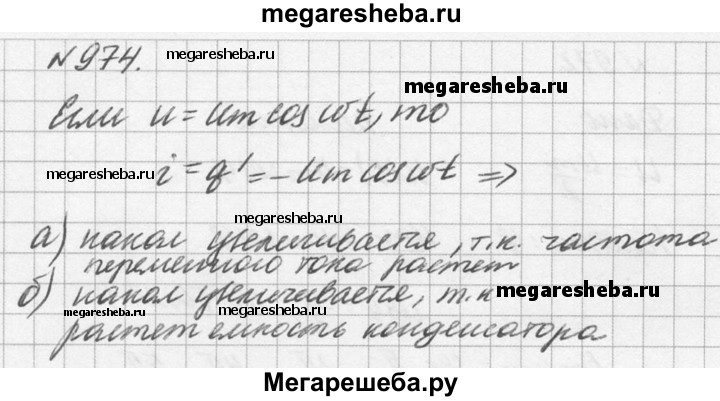 megaresheba.ru
№974.
megaresheba.ru
megaresheba.ru
Если u = Um cos ωt, то
megaresheba.ru
i = q' = -Um cos ωt ⇒
megaresheba.ru
а) накал увеличивается, т.к. частота
переменного тока растет
б) накал увеличивается, т.к
megaresheba.ru
megaresheba.ru
megaresheba.ru
растет емкость конденсатора
Мегарешеба.ру